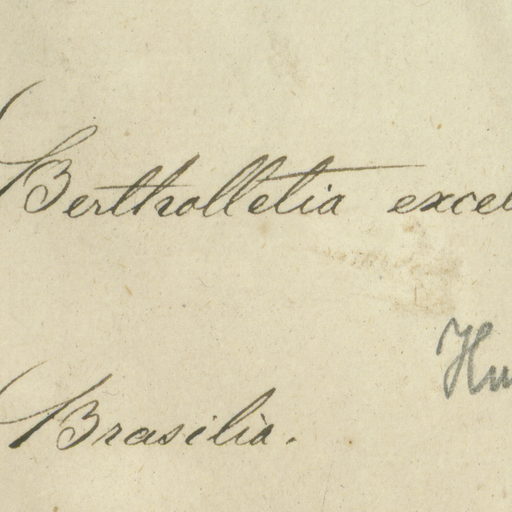 Bertholletia excel
Hu
Brasilia.